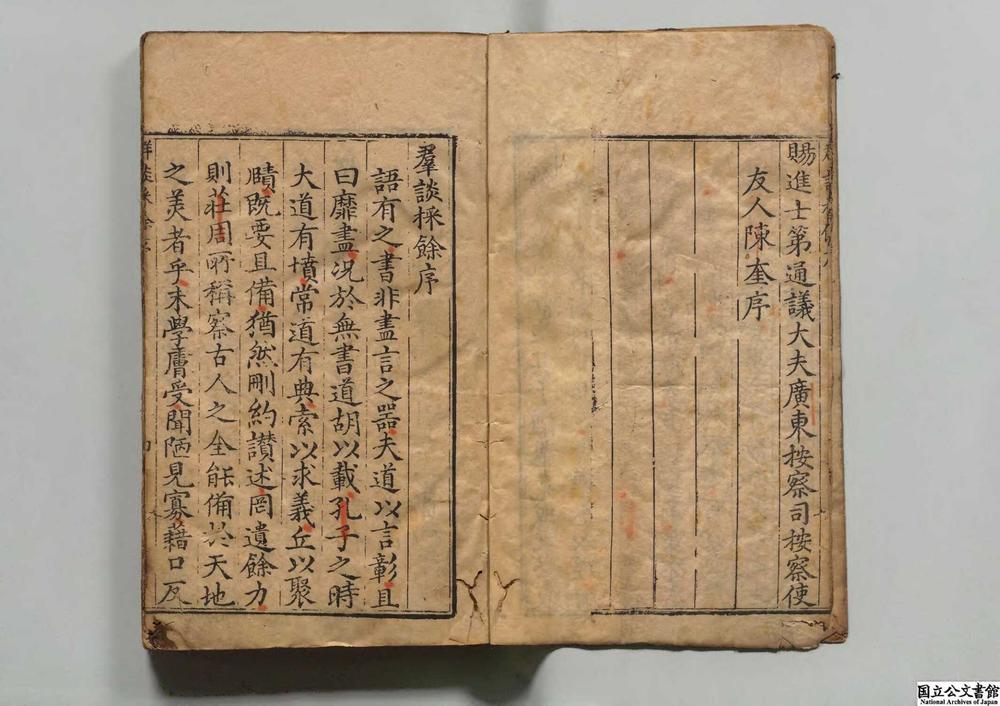 賜進士第通議大夫廣東按察司按察使
友人陳奎序
羣談採餘序
語有之書非盡言之器夫道以言彰且
曰靡盡况於無書道胡以載孔子之時
大道有墳常道有典索以求義丘以聚
賾既要且備猶然刪約讃述罔遺餘力
則莊周所稱察古人之全能備於天地
之美者乎末學膚受聞陋見寡藉口反
国立公文書館
National Archives of Japan